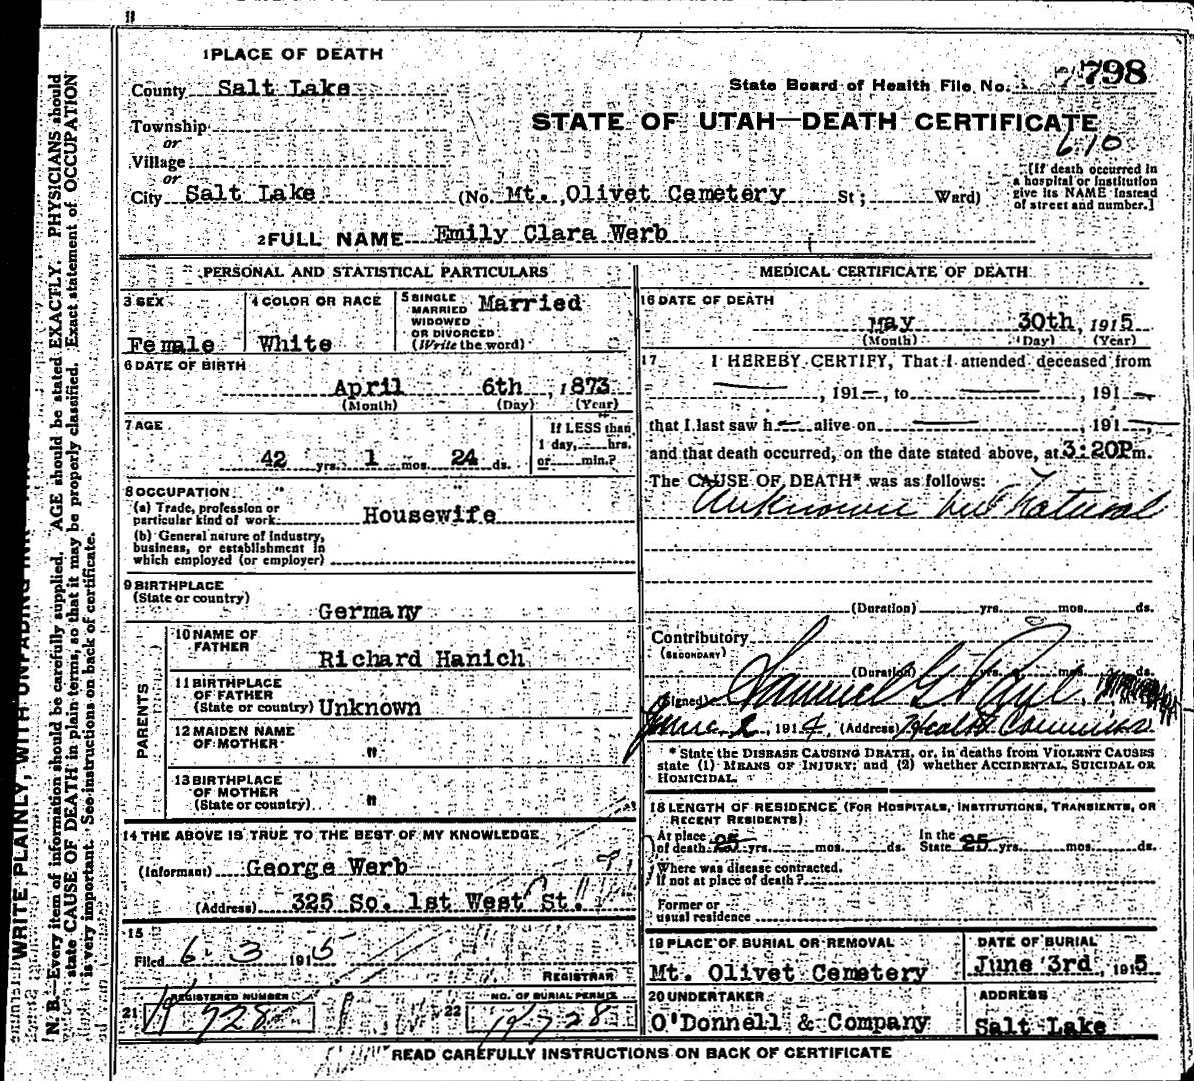 1 PLACE OF DEATH
County Salt Lake
State Board of Health File No. 798
Township
or
Village
or
STATE OF UTAH—DEATH CERTIFICATE
610
City Salt Lake (No. Mt. Olivet Cemetery St; Ward)
[If death occurred in
a hospital or institution
give its NAME instead
of street and number.]
2 FULL NAME Emily Clara Werb
PERSONAL AND STATISTICAL PARTICULARS
3 SEX
Female
4 COLOR OR RACE
White
5 SINGLE
MARRIED
WIDOWED
OR DIVORCED
(Write the word)
Married
6 DATE OF BIRTH
April 6th, 1873
(Month) (Day) (Year)
7 AGE
42 yrs. 1 mos. 24 ds.
If LESS than
1 day, hrs.
or min.?
8 OCCUPATION
(a) Trade, profession or
particular kind of work Housewife
(b) General nature of industry,
business, or establishment in
which employed (or employer)
9 BIRTHPLACE
(State or country)
Germany
PARENTS
10 NAME OF
FATHER
Richard Hanich
11 BIRTHPLACE
OF FATHER
(State or country) Unknown
12 MAIDEN NAME
OF MOTHER "
13 BIRTHPLACE
OF MOTHER
(State or country) "
14 THE ABOVE IS TRUE TO THE BEST OF MY KNOWLEDGE
(Informant) George Werb
(Address) 325 So. 1st West St.
15
Filed 6-3 1915
REGISTRAR
21 REGISTERED NUMBER
728
22 NO. OF BURIAL PERMIT
728
MEDICAL CERTIFICATE OF DEATH
16 DATE OF DEATH
May 30th, 1915
(Month) (Day) (Year)
17 I HEREBY CERTIFY, That I attended deceased from
, 191—, to , 191—
that I last saw h— alive on , 191—,
and that death occurred, on the date stated above, at 3:20P m.
The CAUSE OF DEATH* was as follows:
Unknown but Natural
(Duration) yrs. mos. ds.
Contributory
(SECONDARY)
(Duration) yrs. mos. ds.
(Signed) Samuel G Paul
June 2, 191 (Address) Health Commiss
* State the DISEASE CAUSING DEATH, or, in deaths from VIOLENT CAUSES
state (1) MEANS OF INJURY; and (2) whether ACCIDENTAL, SUICIDAL OR
HOMICIDAL.
18 LENGTH OF RESIDENCE (FOR HOSPITALS, INSTITUTIONS, TRANSIENTS, OR
RECENT RESIDENTS)
At place
of death 25 yrs. mos. ds.
In the
State 25 yrs. mos. ds.
Where was disease contracted.
If not at place of death?
Former or
usual residence
19 PLACE OF BURIAL OR REMOVAL
Mt. Olivet Cemetery
DATE OF BURIAL
June 3rd, 1915
20 UNDERTAKER
O'Donnell & Company
ADDRESS
Salt Lake
READ CAREFULLY INSTRUCTIONS ON BACK OF CERTIFICATE
WRITE PLAINLY, WITH UNFADING INK
N. B.—Every item of information should be carefully supplied. AGE should be stated EXACTLY. PHYSICIANS should
state CAUSE OF DEATH in plain terms, so that it may be properly classified. Exact statement of OCCUPATION
is very important. See instructions on back of certificate.